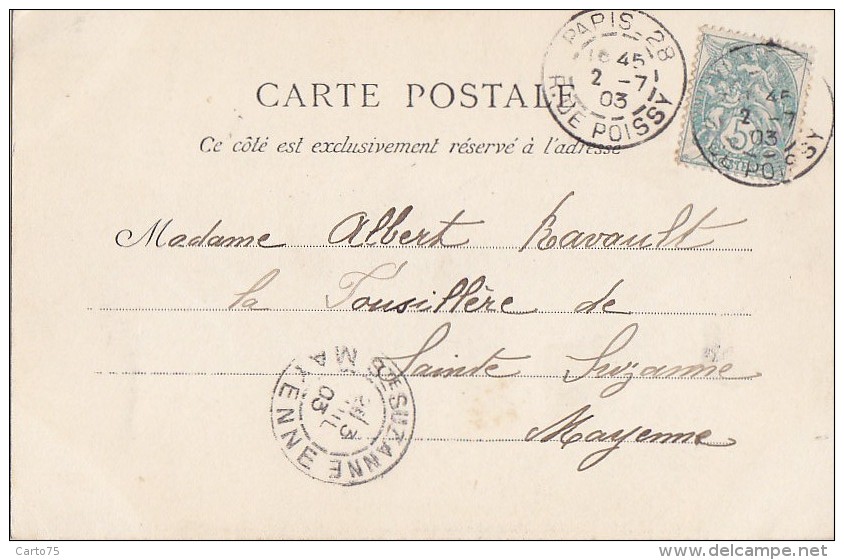 PARIS-28
16 45
2 -7
03
R. DE POISSY
45
2 -7
03
POISSY
5
CARTE POSTALE
Ce côté est exclusivement réservé à l'adresse
Madame Albert Ravault
la Tousillère de
Sainte Suzanne
Mayenne
STE SUZANNE
3
JUIL
03
MAYENNE
Carto75
www.delcampe.net